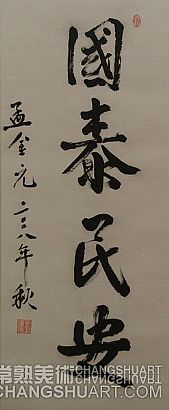 國泰民安
孟金元 二〇〇八年秋
常熟美術 CHANGSHUART
CHANGSHUART.COM